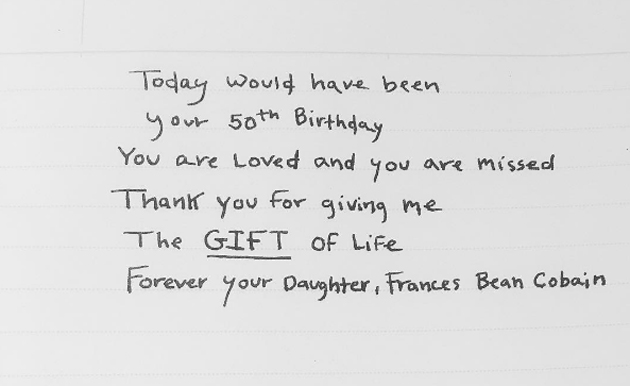 Today would have been
your 50th Birthday
You are Loved and you are missed
Thank you for giving me
The GIFT of Life
Forever your Daughter, Frances Bean Cobain